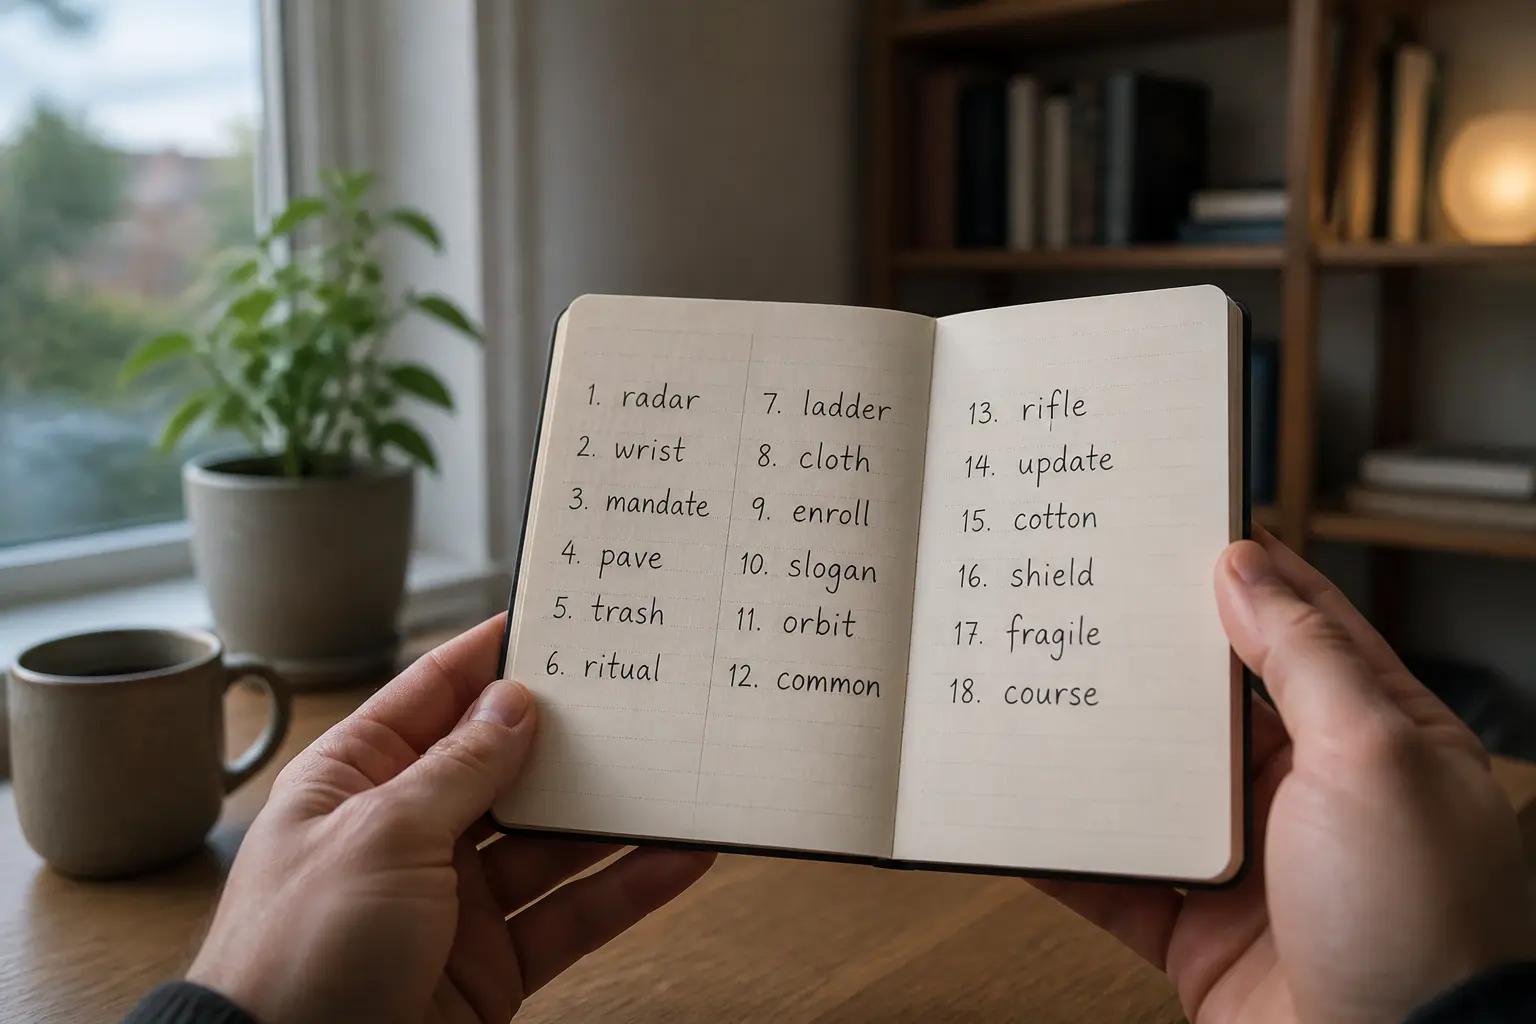 1. radar
2. wrist
3. mandate
4. pave
5. trash
6. ritual
7. ladder
8. cloth
9. enroll
10. slogan
11. orbit
12. common
13. rifle
14. update
15. cotton
16. shield
17. fragile
18. course